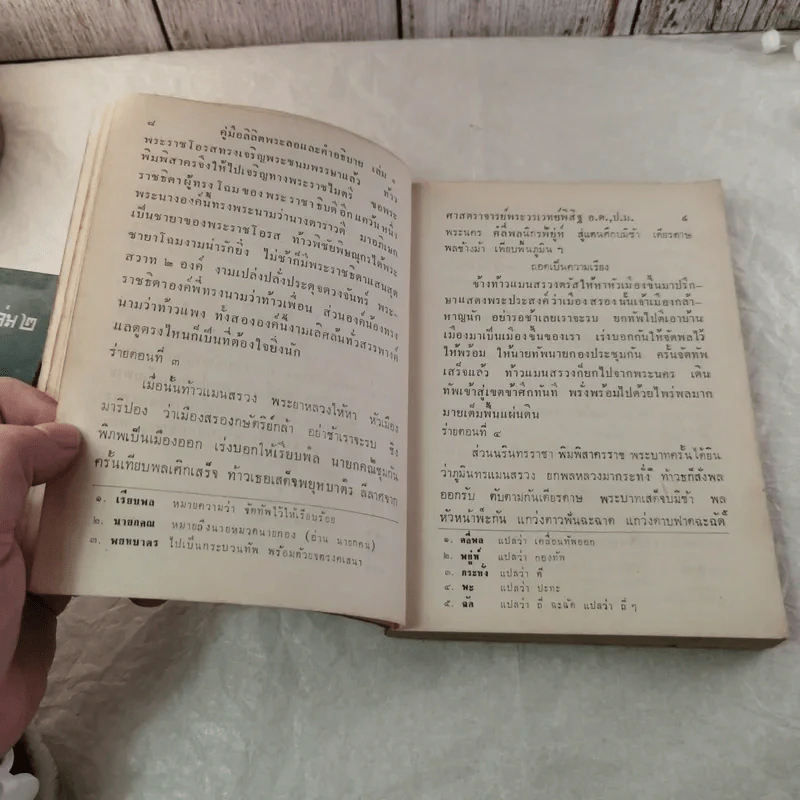 ๘
คู่มือลิลิตพระลอและคำอธิบาย เล่ม ๑
พระราชโอรสทรงเจริญพระชนมพรรษาแล้ว ท้าว
พิมพิสาครจึงให้ไปเจริญทางพระราชไมตรี ขอพระ
ราชธิดาผู้ทรงโฉมของพระราชาธิบดีอีกแคว้นหนึ่ง
พระนางองค์นี้ทรงพระนามว่านางดาราวดี มาอภิเษก
เป็นชายาของพระราชโอรส ท้าวพิชัยพิษณุกรได้พระ
ชายาโฉมงามน่ารักยิ่ง ไม่ช้าก็มีพระราชธิดาแสนสุด
สวาท ๒ องค์ งามเปล่งปลั่งประดุจดวงจันทร์ พระ-
ราชธิดาองค์พี่ทรงนามว่าท้าวเพื่อน ส่วนองค์น้องทรง
นามว่าท้าวแพง ทั้งสององค์นี้งามเลิศล้นทั่วสรรพางค์
แลดูตรงไหนก็เป็นที่ต้องใจยิ่งนัก
ร่ายตอนที่ ๓
เมื่อนั้นท้าวแมนสรวง พระยาหลวงให้หา หัวเมือง
มาริปอง ว่าเมืองสรองกษัตริย์กล้า อย่าช้าเราจะรบ ชิง
พิภพเป็นเมืองออก เร่งบอกให้เรียบพล นายกคณชุมกัน
ครั้นเทียบพลเศิกเสร็จ ท้าวเธอเสด็จพยุหบาตรา ลีลาศจาก
๑. เรียบพล หมายความว่า จัดทัพไว้ให้เรียบร้อย
๒. นายกคณ หมายถึงนายหมวดนายกอง (อ่าน นายกคน)
๓. พยุหบาตร ไปเป็นกระบวนทัพ พร้อมด้วยจตุรงคเสนา
ศาสตราจารย์พระวรเวทย์พิสิฐ อ.ด.,ป.ม. ๙
พระนคร คลี่พลนิกรพยู่ห์ สู่แดนศึกบมิช้า เดียรดาษ
พลช้างม้า เพียบพื้นภูมิน ฯ
ถอดเป็นความเรียง
ข้างท้าวแมนสรวงตรัสให้หาหัวเมืองขึ้นมาปรึก-
ษาแสดงพระประสงค์ว่าเมืองสรองนั้นเจ้าเมืองกล้า-
หาญนัก อย่ารอช้าเลยเราจะรบ ยกทัพไปตีเอาบ้าน
เมืองมาเป็นเมืองขึ้นของเรา เร่งบอกกันให้จัดพลไว้
ให้พร้อม ให้นายทัพนายกองประชุมกัน ครั้นจัดทัพ
เสร็จแล้ว ท้าวแมนสรวงก็ยกไปจากพระนคร เดิน
ทัพเข้าสู่เขตข้าศึกทันที พรั่งพร้อมไปด้วยไพร่พลมาก
มายเต็มพื้นแผ่นดิน
ร่ายตอนที่ ๔
ส่วนนรินทรราชา พิมพิสาครราช พระบาทครั้นได้ยิน
ว่าภูมินทรแมนสรวง ยกพลหลวงมากระทั่ง ท้าวธก็สั่งพล
ออกรับ ตับตามกันเดียรดาษ พระบาทเสด็จบมิช้า พล
หัวหน้าพะกัน แกว่งดาวฟันฉะฉาด แกว่งดาบฟาดฉะฉัด๕
๑. คลี่พล แปลว่า เคลื่อนทัพออก
๒. พยู่ห์ แปลว่า กองทัพ
๓. กระทั่ง แปลว่า ตี
๔. พะ แปลว่า ปะทะ
๕. ฉัด แปลว่า ถี่ ฉะฉัด แปลว่า ถี่ ๆ